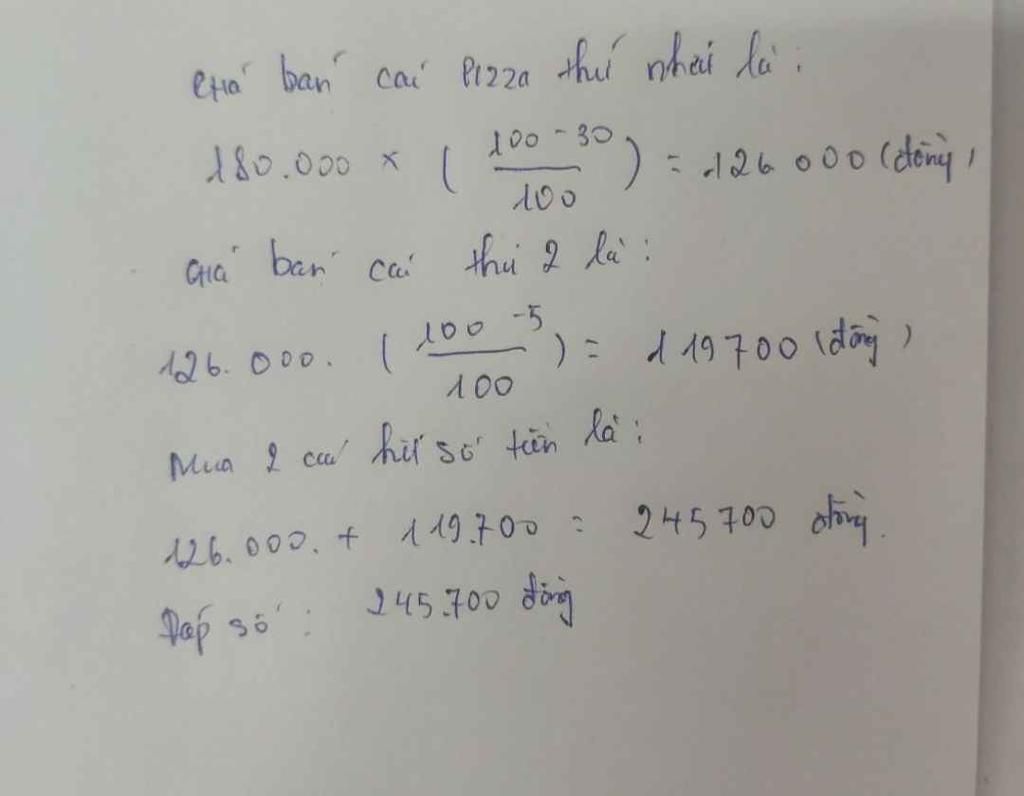 Giá bán cái Pizza thứ nhất là:
180.000 × ( \frac{100 - 30}{100} ) = 126 000 (đồng)
Giá bán cái thứ 2 là:
126.000. ( \frac{100 - 5}{100} ) = 119700 (đồng)
Mua 2 cái hết số tiền là:
126.000. + 119.700 = 245700 đồng.
Đáp số: 245.700 đồng